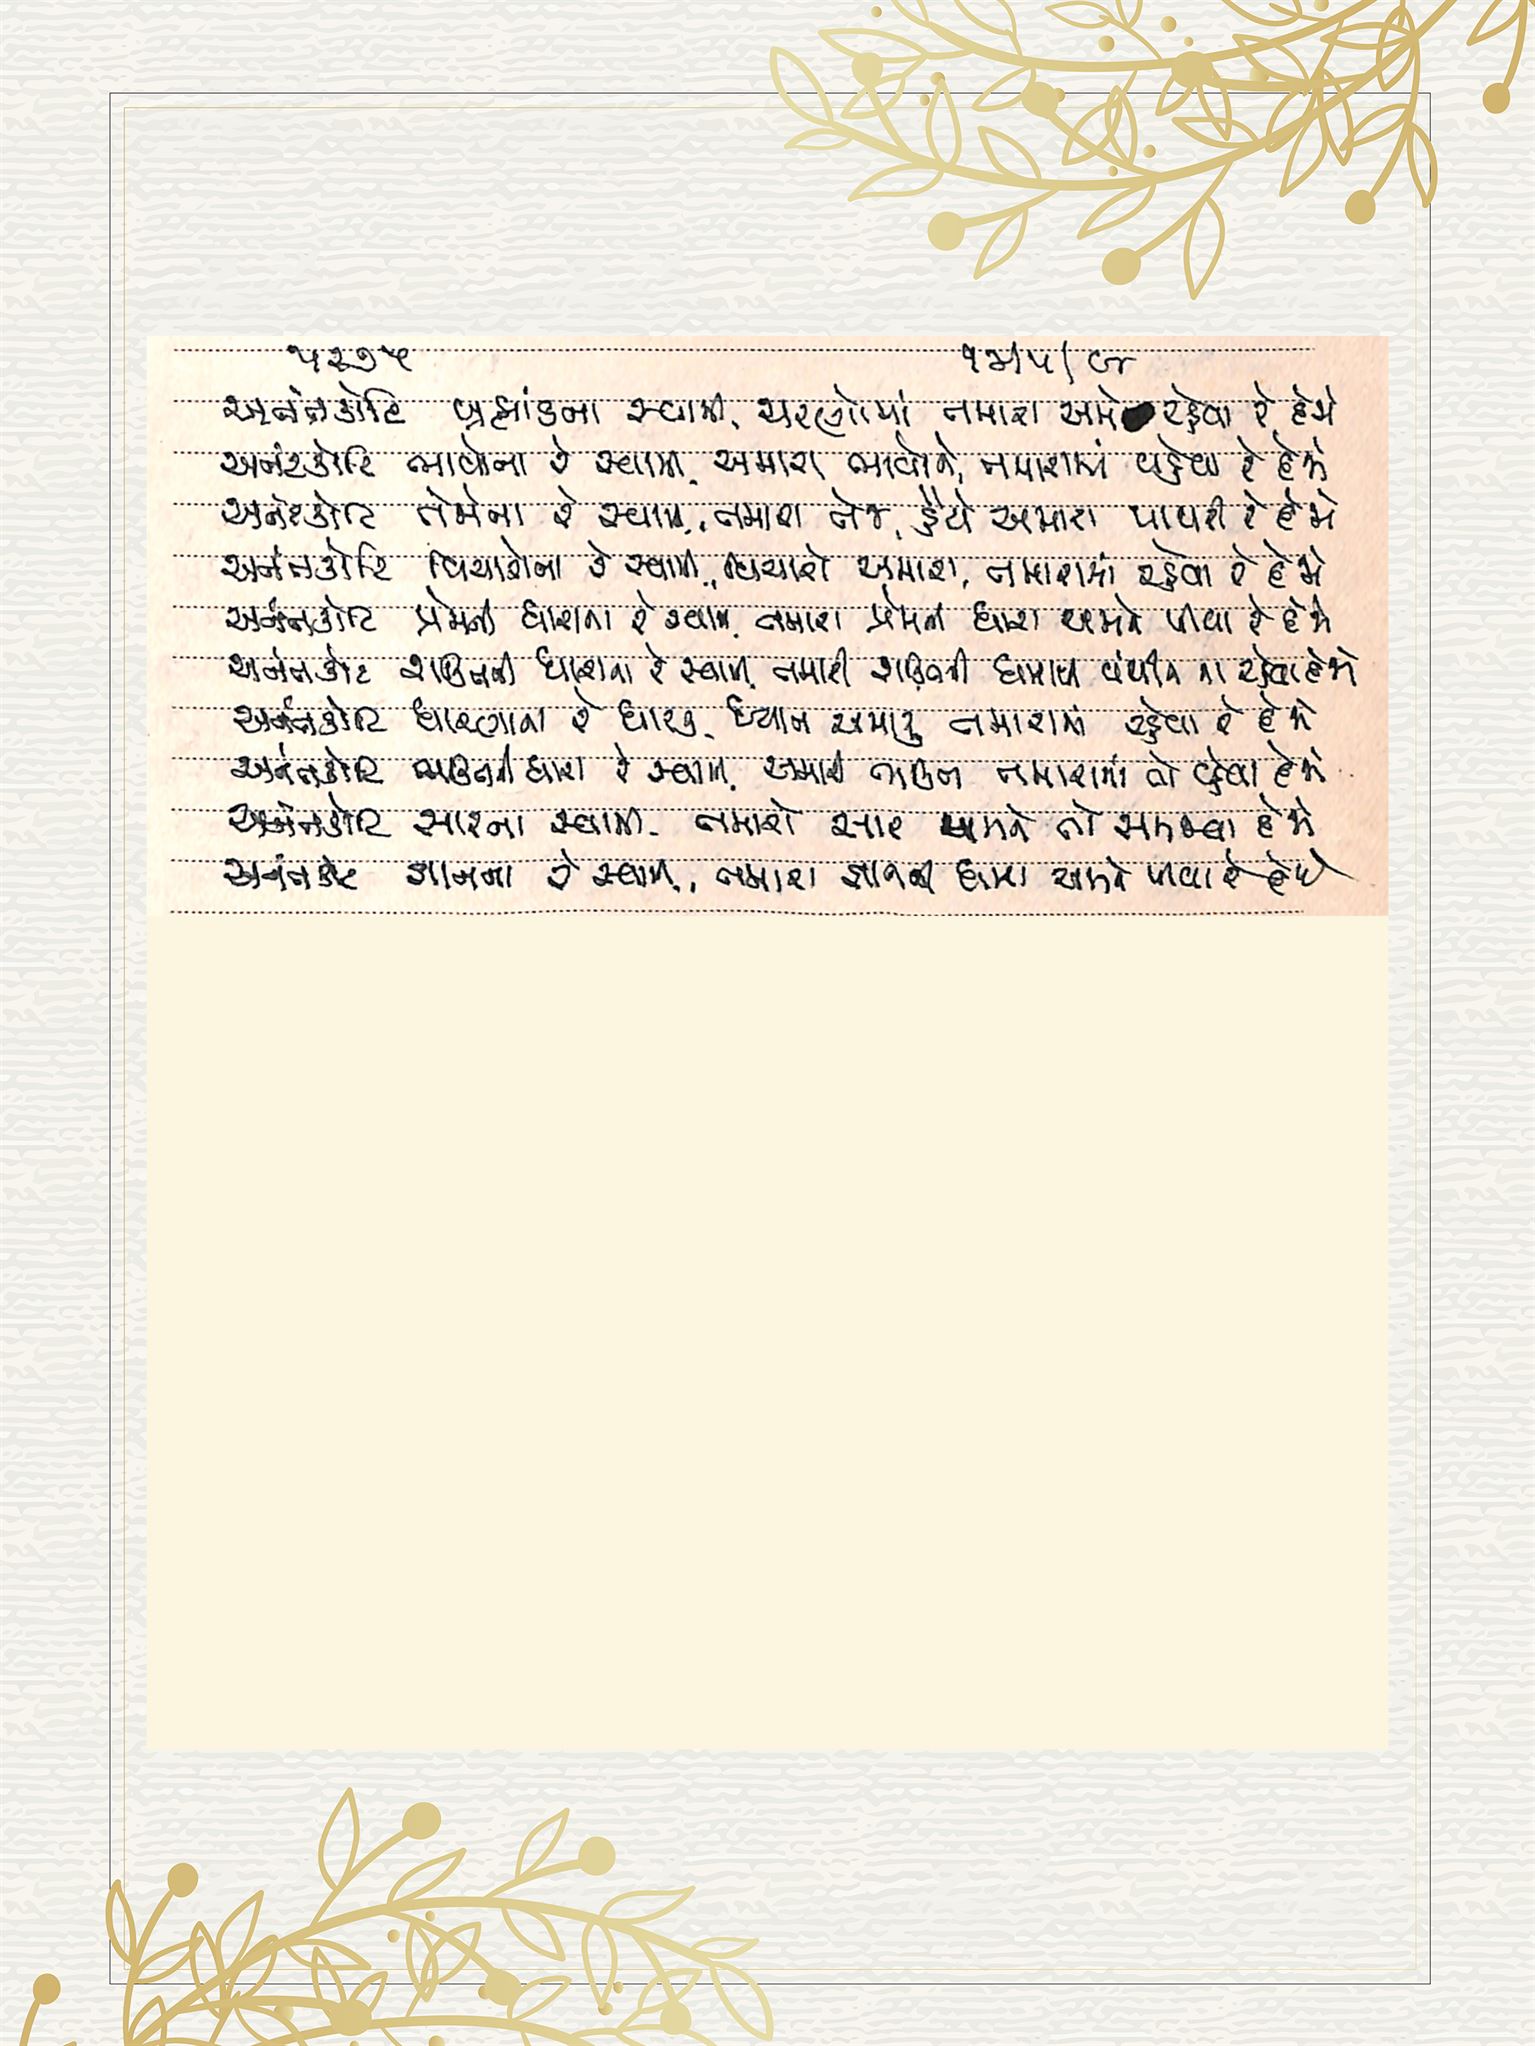 ૫૨૭૫
અનંતકોટિ બ્રહ્માંડના સ્વામી, ચરણોમાં તમારા અમે રહેવા રે દેજો
અનંતકોટિ ભાવોના રે સ્વામી, અમારા ભાવોને, તમારામાં વહેવા રે દેજો
અનંતકોટિ તેજોના રે સ્વામી, તમારા તેજ, હૈયે અમારા પાથરી રે દેજો
અનંતકોટિ વિચારોના રે સ્વામી, વિચારો અમારા, તમારામાં રહેવા રે દેજો
અનંતકોટિ પ્રેમની ધારાના રે સ્વામી, તમારા પ્રેમની ધારા અમને પીવા રે દેજો
અનંતકોટિ શક્તિની ધારાના રે સ્વામી, તમારી શક્તિની ધારાથી વંચિત ના રહેવા દેજો
અનંતકોટિ ધારણાના રે ધારક, ધ્યાન અમારું તમારામાં રહેવા રે દેજો
અનંતકોટિ ભક્તિની ધારા રે સ્વામી, અમારી ભક્તિ તમારામાં તો વહેવા દેજો
અનંતકોટિ સારના સ્વામી, તમારો સાર અમને તો સમજવા દેજો
અનંતકોટિ જ્ઞાનના રે સ્વામી, તમારા જ્ઞાનની ધારા અમને પીવા રે દેજો